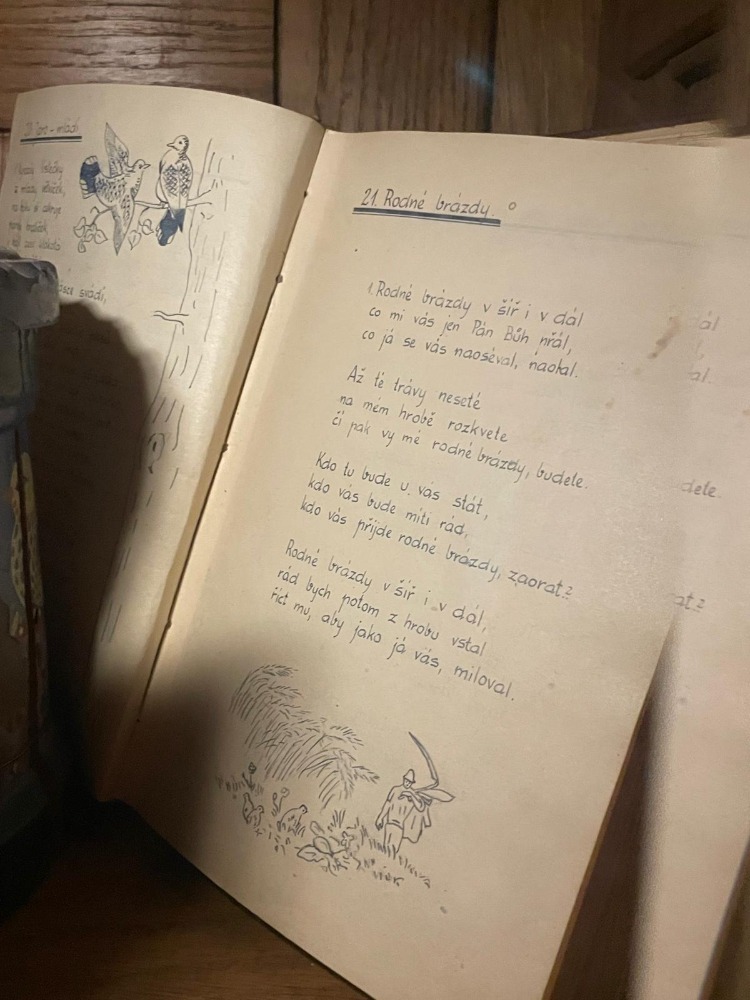 mládí
svádí,
21. Rodné brázdy.
1. Rodné brázdy v šíř i v dál
co mi vás jen Pán Bůh přál,
co já se vás naoséval, naoral.
Až té trávy neseté
na mém hrobě rozkvete
čí pak vy mé rodné brázdy, budete.
Kdo tu bude u vás stát,
kdo vás bude míti rád,
kdo vás přijde rodné brázdy, zaorat?
Rodné brázdy v šíř i v dál,
rád bych potom z hrobu vstal
říct mu, aby jako já vás, miloval.
dál
al.
dete.
at?